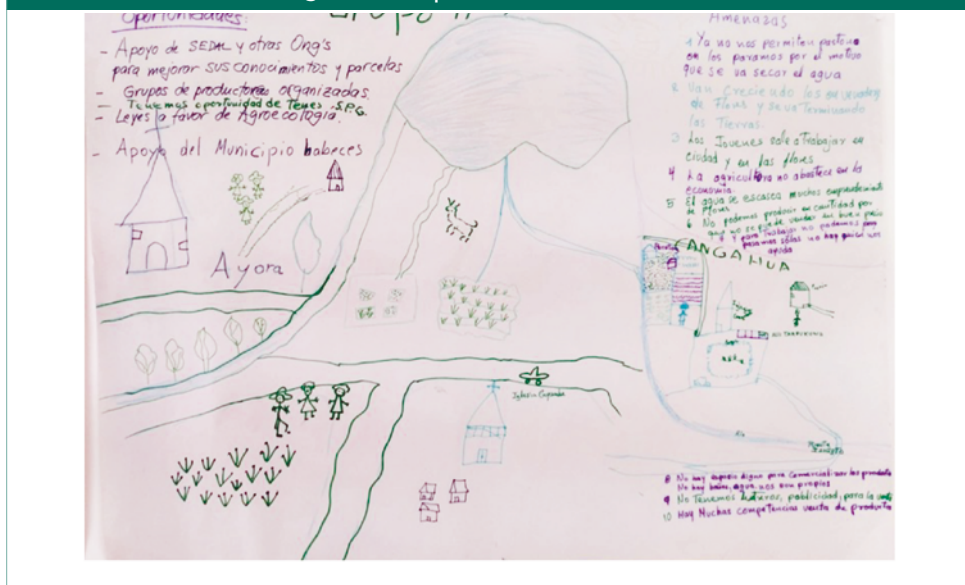 Oportunidades:
- Apoyo de SEDAL y otras Ong's
para mejorar sus conocimientos y parcelas
- Grupos de productoras organizadas
Tenemos oportunidad de Tener S.P.G.
- Leyes a favor de Agroecología.
- Apoyo del Municipio
Ayora
Amenazas
1 Ya no nos permiten pastorear
en los paramos por el motivo
que se va secar el agua
2 Van Creciendo los
de Flores y se va Terminando
las Tierras.
3 Los Jovenes sale a Trabajar en
ciudad y en las flores
4 La agricultura no abastece en la
economia.
5 El agua se escasea muchos
de Flores
6 No podemos producir en cantidad por
que no se puede vender en buen precio
y para trabajar no podemos
pasamos solas no hay quien nos
ayuda
CANGAHUA
Iglesia
Río
8 No hay espacio digno para Comercializar los producto
No hay baños, agua, nos son propios
9 No Tenemos publicidad, para la
10 Hay Muchas competencias venta de producto